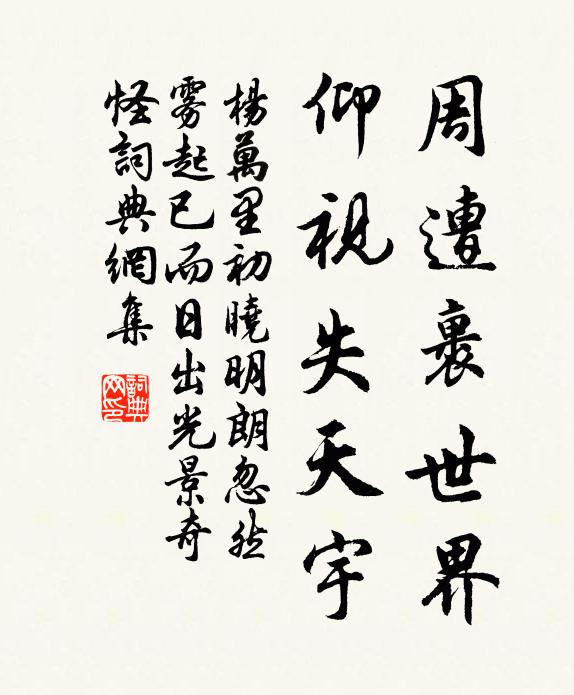 周遭裹世界
仰視失天宇
楊萬里初曉明朗忽然
雾起已而日出光景奇
怪詞典網集
詞典网印